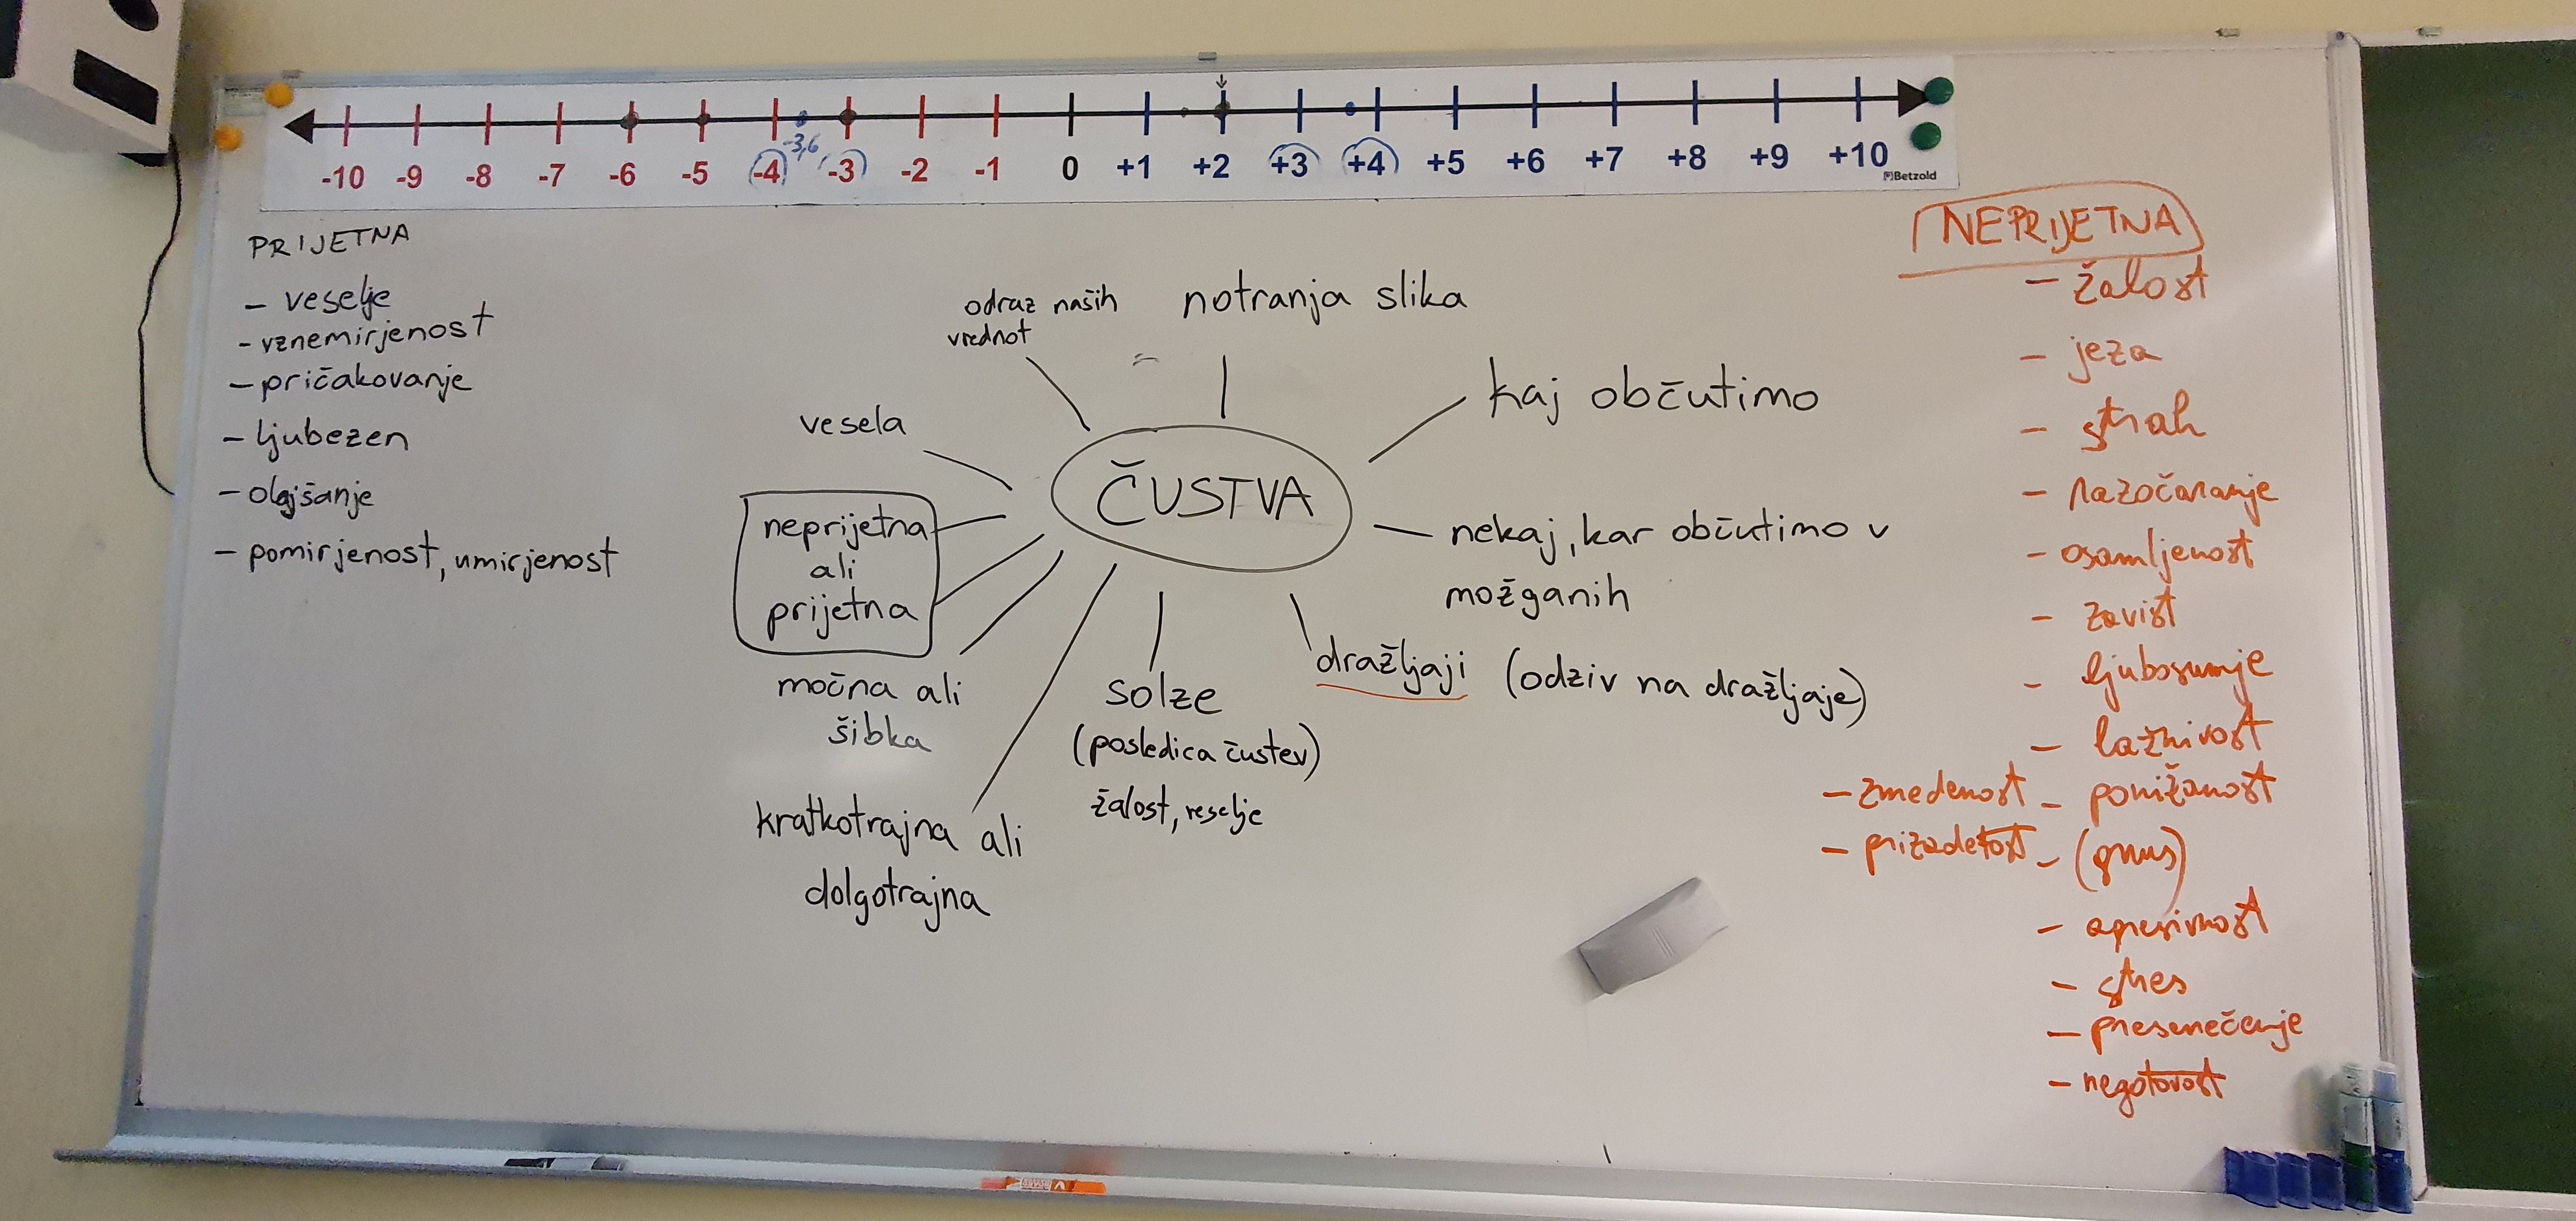 -10 -9 -8 -7 -6 -5 -4 -3,6 -3 -2 -1 0 +1 +2 +3 +4 +5 +6 +7 +8 +9 +10
Betzold
PRIJETNA
- veselje
- vznemirjenost
- pričakovanje
- ljubezen
- olajšanje
- pomirjenost, umirjenost
odraz naših
vrednot
notranja slika
kaj občutimo
vesela
ČUSTVA
neprijetna
ali
prijetna
nekaj, kar občutimo v
možganih
močna ali
šibka
solze
(posledica čustev)
žalost, veselje
dražljaji (odziv na dražljaje)
kratkotrajna ali
dolgotrajna
NEPRIJETNA
- žalost
- jeza
- strah
- razočaranje
- osamljenost
- zavist
- ljubosumje
- lažnivost
- zmedenost - ponižanost
- prizadetost - (gnus)
- agresivnost
- stres
- presenečenje
- negotovost